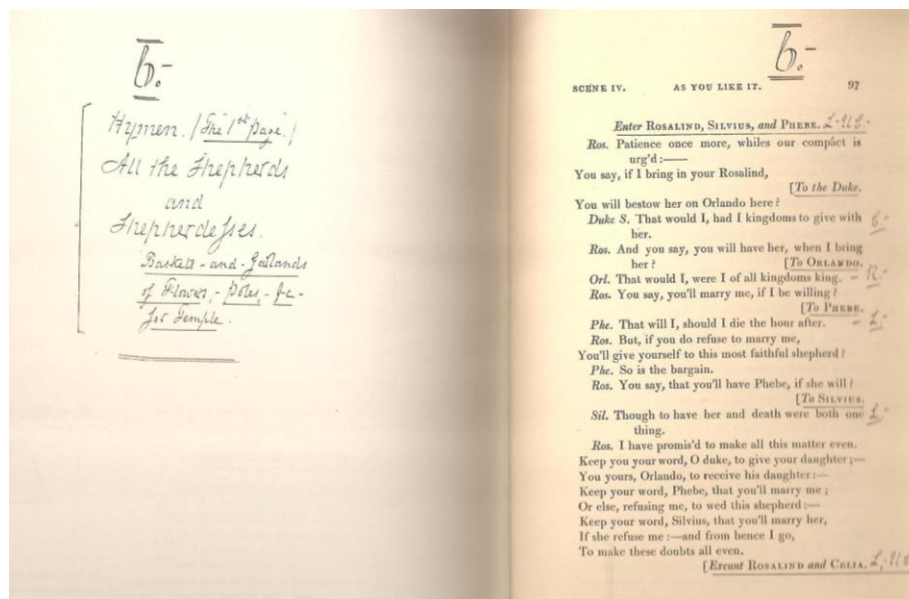 6.-
Hymen. / The 1st Page. /
All the Shepherds
and
Shepherdesses.
Baskets - and - Garlands
of Flowers, - Poles, - &c -
for Temple.
6.-
SCENE IV. AS YOU LIKE IT. 97
Enter ROSALIND, SILVIUS, and PHEBE. L-U.E.-
Ros. Patience once more, whiles our compáct is
urg'd:——
You say, if I bring in your Rosalind,
[To the Duke.
You will bestow her on Orlando here?
Duke S. That would I, had I kingdoms to give with
her.
Ros. And you say, you will have her, when I bring
her? [To ORLANDO.
Orl. That would I, were I of all kingdoms king. - R.-
Ros. You say, you'll marry me, if I be willing?
[To PHEBE.
Phe. That will I, should I die the hour after. - L.-
Ros. But, if you do refuse to marry me,
You'll give yourself to this most faithful shepherd?
Phe. So is the bargain.
Ros. You say, that you'll have Phebe, if she will?
[To SILVIUS.
Sil. Though to have her and death were both one L.-
thing.
Ros. I have promis'd to make all this matter even.
Keep you your word, O duke, to give your daughter;—
You yours, Orlando, to receive his daughter:—
Keep your word, Phebe, that you'll marry me;
Or else, refusing me, to wed this shepherd:—
Keep your word, Silvius, that you'll marry her,
If she refuse me:—and from hence I go,
To make these doubts all even.
[Exeunt ROSALIND and CELIA.